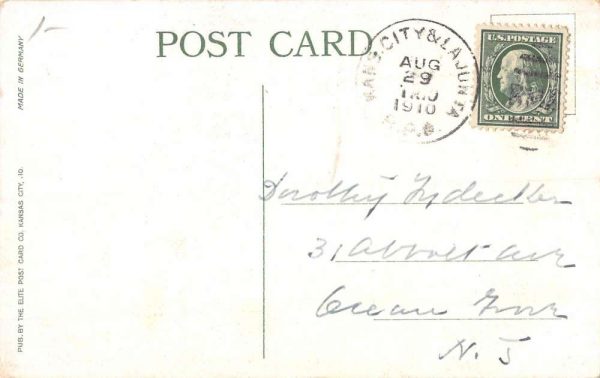 1-
POST CARD
MADE IN GERMANY
PUB. BY THE ELITE POST CARD CO. KANSAS CITY, .IO.
KANS. CITY & LA JUNTA
AUG
29
1910
R.P.O.
U.S. POSTAGE
ONE CENT
Dorothy
31 Abbott Ave
Ocean Grove
N. J